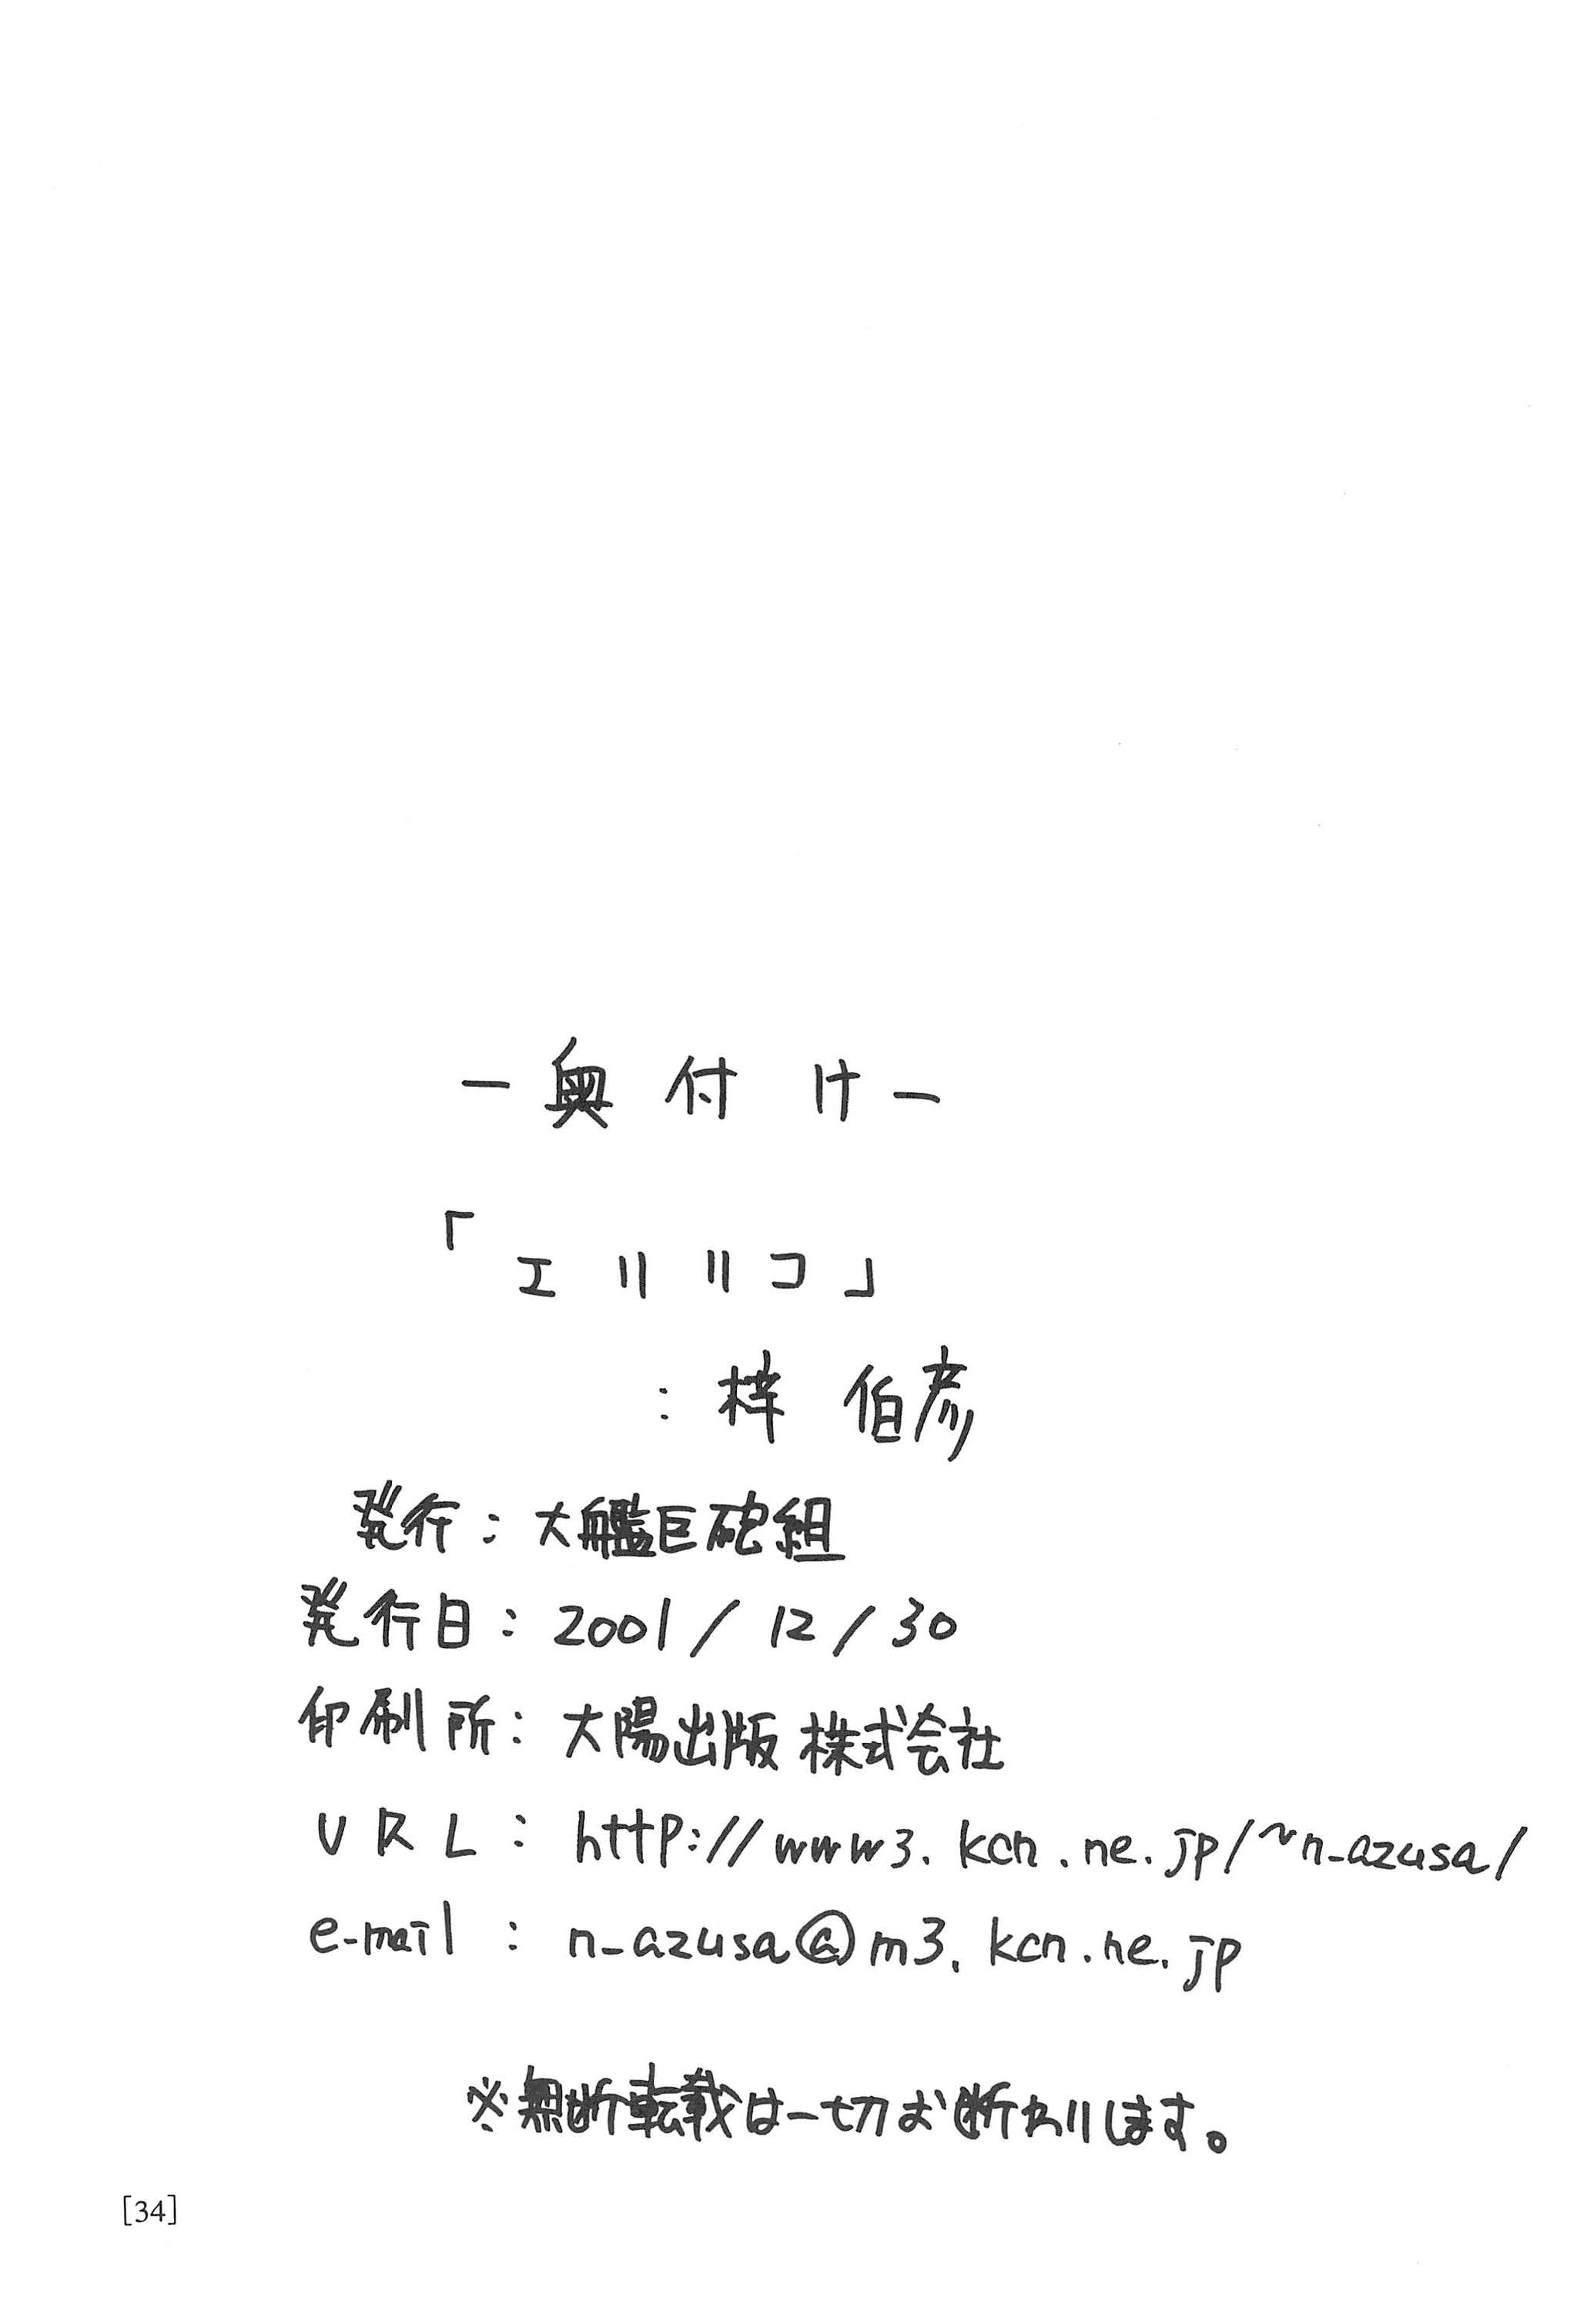 ー奥付けー
「エリリコ」
：梓 伯彦
発行：大艦巨砲組
発行日：2001/12/30
印刷所：大陽出版 株式会社
URL：http://www3.kcn.ne.jp/~n-azusa/
e-mail：n-azusa@m3.kcn.ne.jp
※無断転載は一切お断わりします。
[34]